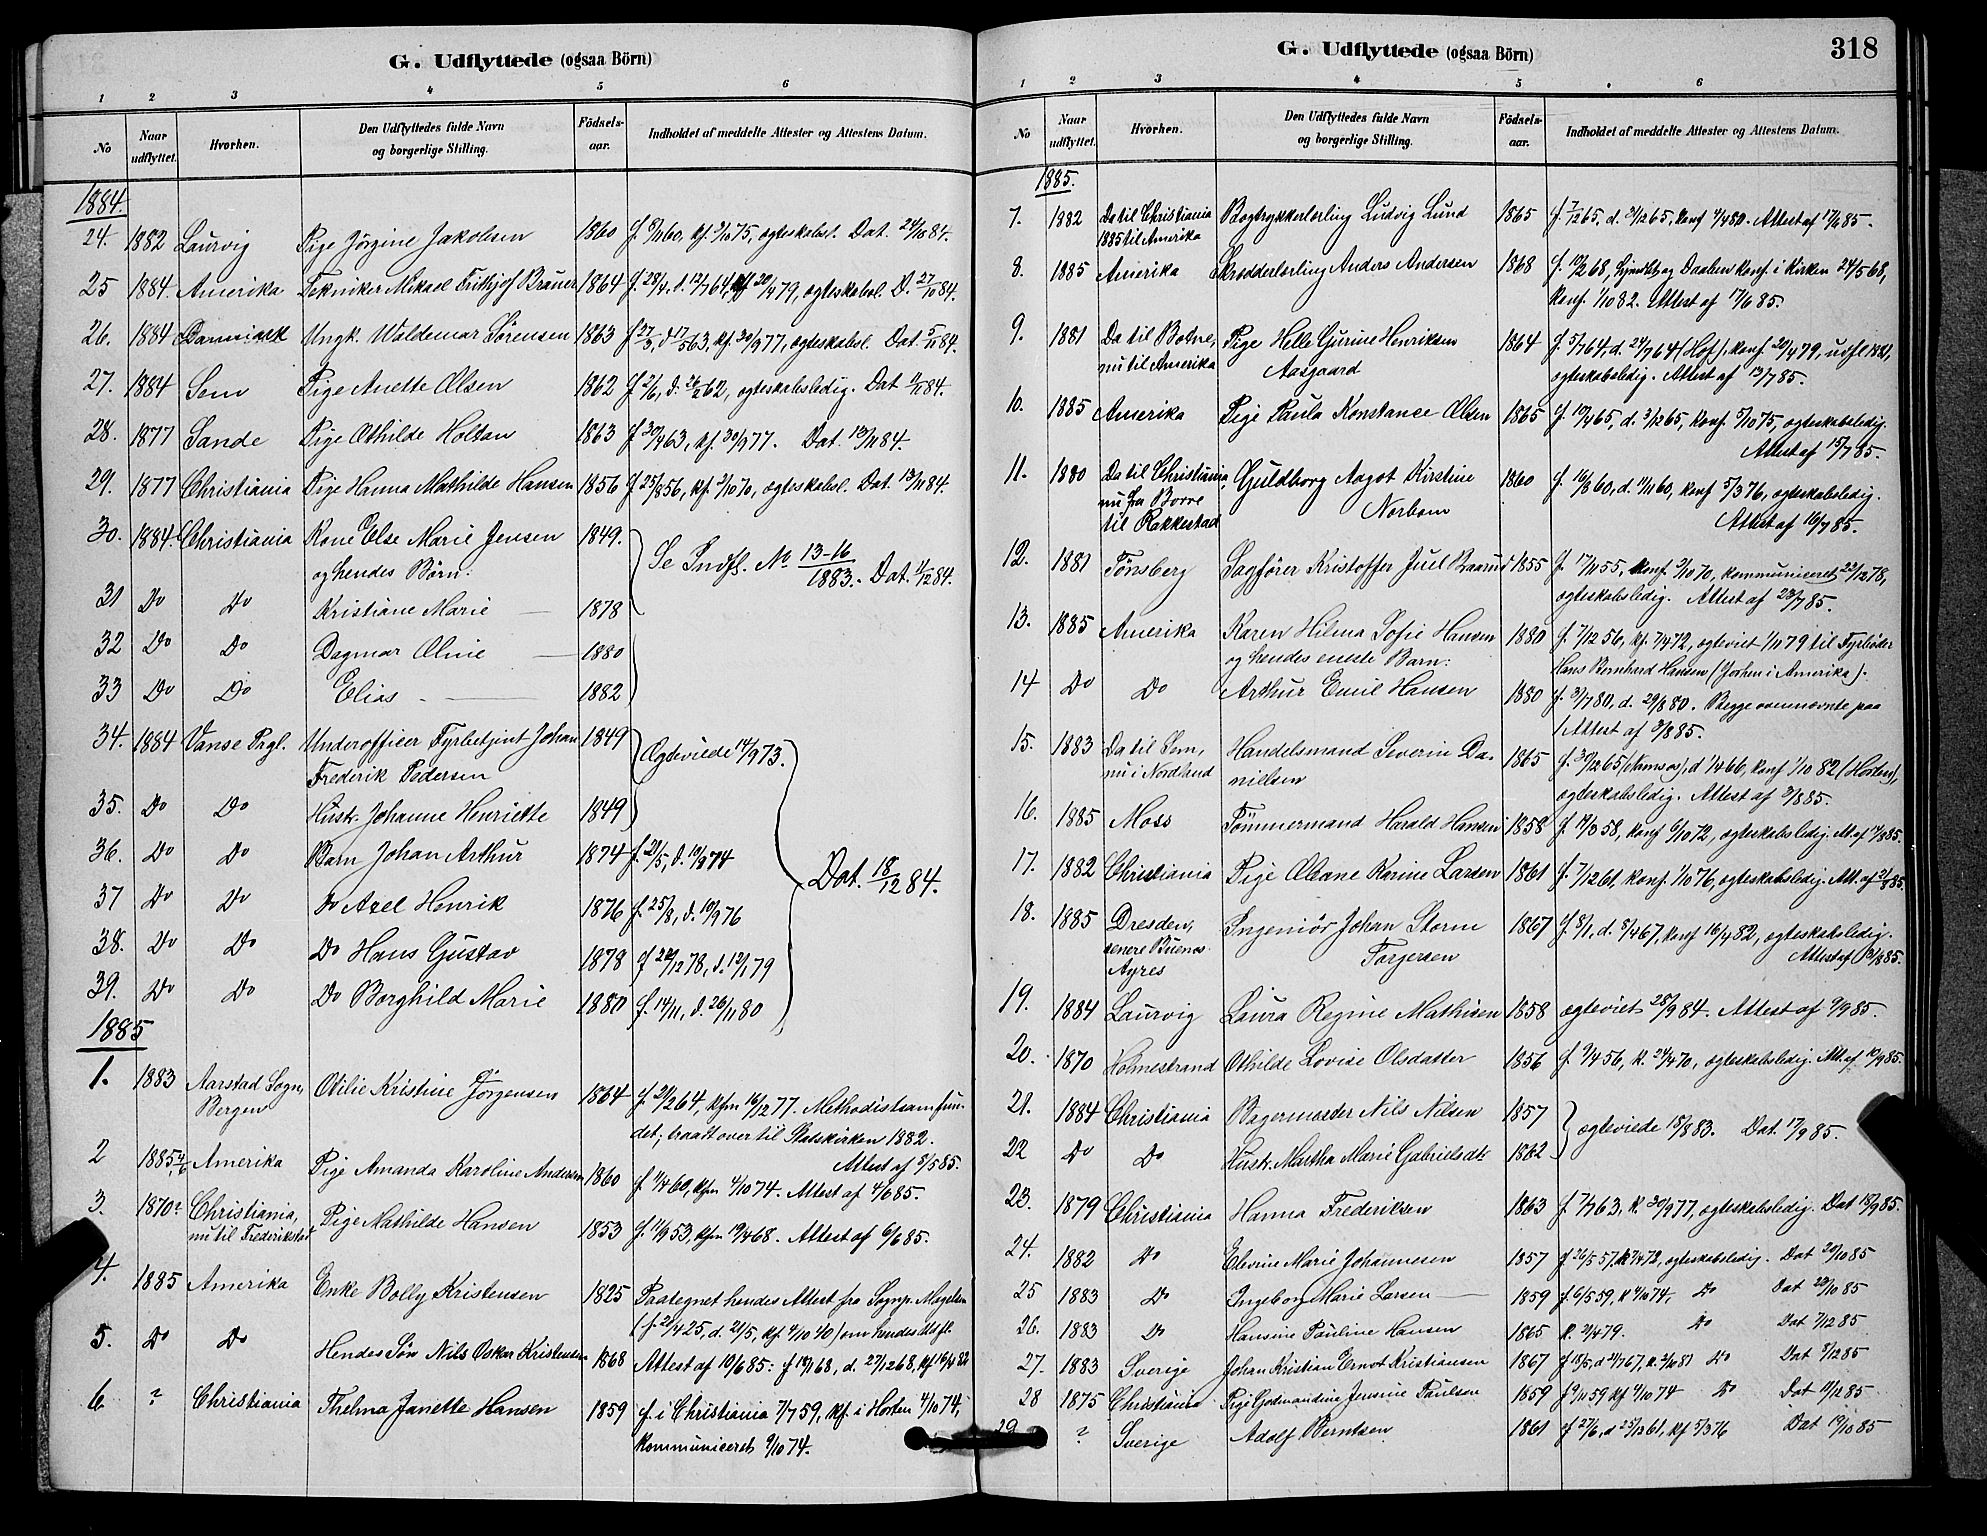 G. Udflyttede (ogsaa Börn)
1 2 3 4 5 6
No Naar udflyttet. Hvorhen. Den Udflyttedes fulde Navn og borgerlige Stilling. Födsels-aar. Indholdet af meddelte Attester og Attestens Datum.
1884.
24. 1882 Laurvig Pige Jörgine Jakobsen 1860 Dat. 24/10 84.
25 1884. Amerika Tekniker Mikael Frithjof Brauer 1864 f. 28/4, d. 12/7 64, kf 20/4 79, ægteskabsl. D. 27/10 84.
26. 1884 Danmark Ungk. Waldemar Sörensen 1863 f 27/3, d 17/5 63, kf. 30/9 77, ægteskabsl. Dat. 5/11 84.
27. 1884 Sem Pige Anette Olsen 1862 ægteskabsledig. Dat 11/11 84.
28. 1877 Sande Pige Othilde Holtan 1863 f 30/4 63, kf. 30/9 77. Dat. 13/11 84.
29. 1877 Christiania Pige Hanna Mathilde Hansen 1856 f 25/8 56, kf. 2/10 70, ægteskabsl. Dat. 13/11 84.
30. 1884. Christiania Kone Else Marie Jensen 1849.
og hendes Börn: Se Indfl. No 13-16/1883. Dat. 1/12 84.
31 Do Do Kristiane Marie 1878
32 Do Do Dagmar Oline 1880
33 Do Do Elias 1882
34. 1884 Vanse Prgl. Underofficer Fyrbetjent Johan 1849 Ægteviede 14/9 73.
Frederik Pedersen
35. Do Do Hustr. Johanne Henriette 1849
36. Do Do Barn Johan Arthur 1874 f. 21/5, d. 19/9 74
Dat. 18/12 84.
37 Do Do Do Axel Henrik 1876 f. 25/8, d. 10/9 76
38. Do Do Do Hans Gustav 1878 f 22/12 78, d. 12/1 79
39. Do Do Do Borghild Marie 1880 f. 14/11, d. 26/11 80
1885
1. 1883 Aarstad Sogn, Otilie Kristine Jörgensen 1864 f. 21/2 64, kfm 16/12 77. Methodistsamfun-
Bergen det; traadt over til Statskirken 1882.
Attest af 8/5 85.
2 1885, 4/6 Amerika Pige Amanda Karoline Andersen 1860 f. 1/4 60, kfm 4/10 74. Attest af 4/6 85.
3. 1870? Christiania, Pige Mathilde Hansen 1853 f. 11/9 53, kfm 19/4 68. Attest af 6/6 85.
nu til Frederikstad
4. 1885 Amerika Enke Bolly Kristensen 1825 Paategnet hendes Attest fra Sognp. Magelsen
(f 21/4 25, d. 21/5, kf. 4/10 40) om hendes Udfl.
5. Do Do Hendes Sön Nils Oskar Kristensen 1868 Attest af 10/6 85:
6 ? Christiania Thelma Janette Hansen 1859 f. i Christiania 7/7 59, kf. i Horten 4/10 74,
kommuniceret 9/10 74.
G. Udflyttede (ogsaa Börn) 318
1 2 3 4 5 6
No Naar udflyttet. Hvorhen. Den Udflyttedes fulde Navn og borgerlige Stilling. Födsels-aar. Indholdet af meddelte Attester og Attestens Datum.
1885.
7. 1882 Da til Christiania Bogtrykkerlærling Ludvig Lund 1865 Attest af 17/6 85.
1885 til Amerika
8. 1885 Amerika Skrædderlærling Anders Andersen 1868 Hjemdbt og Daaben konf. i Kirken 24/5 68,
konf. 1/10 82. Attest af 17/6 85.
9. 1881 Da til Botne, Pige Helle Gurine Henriksen 1864 f. 5/7 64, d. 24/7 64 (Hof), konf. 20/4 79, udfl 1881,
nu til Amerika Aasgaard ægteskabsledig. Attest af 13/7 85.
10. 1885 Amerika Pige Paula Konstance Olsen 1865 ægteskabsledig.
Attest af 15/7 85.
11. 1880 Da til Christiania, Guldborg Aagot Kirstine 1860 konf 5/3 76, ægteskabsledig.
nu fra Borre Norbom Attest af 16/7 85.
til Rakkestad
12. 1881 Tönsberg Sagförer Kristoffer Juel Baarud 1855 f. 17/10 55, konf. 2/10 70, kommuniceret 22/12 78,
ægteskabsledig. Attest af 28/7 85.
13. 1885 Amerika Karen Hilma Sofie Hansen 1880 f. 7/12 56, kf. 7/4 72, ægteviet 1/11 79 til Fyrböder
og hendes eneste Barn: Hans Bernhard Hansen (Forhen i Amerika).
14 Do Do Arthur Emil Hansen 1880 f. 31/7 80, d. 29/8 80. Begge ovennævnte paa
1 Attest af 3/8 85.
15. 1883 Da til Sem, Handelsmand Severin Da- 1865 f. 30/12 65 (Namsos), d 1/4 66, konf 1/10 82 (Horten),
nu i Nordland nielsen ægteskabsledig. Attest af 3/8 85.
16. 1885 Moss Tömmermand Harald Hansen 1858 f. 19/3 58, konf 6/10 72, ægteskabsledig.
17. 1882 Christiania Pige Oleane Karine Larsen 1861 f. 7/12 61, konf. 1/10 76, ægteskabsledig. Att. af 21/8 85.
18. 1885 Dresden, Ingeniör Johan Storm 1867 f. 8/1, d. 8/4 67, konf 16/4 82, ægteskabsledig.
senere Buenos Torgersen Attest af 31/8 85.
Ayres
19. 1884 Laurvig Laura Regine Mathisen 1858 ægteviet 28/9 84. Attest af 9/9 85.
20. 1870 Holmestrand Othilde Lovise Olsdatter 1856 f. 9/4 56, k. 24/4 70, ægteskabsledig. Att. af 10/9 85.
21. 1884 Christiania Bagermester Nils Nilsen 1857
ægteviede 18/8 83. Dat. 17/9 85.
22 Do Do Hustr. Martha Marie Gabrielsdtr 1862
23. 1879 Christiania Hanna Frederiksen 1863 f. 7/7 63, k. 30/9 77, ægteskabsledig. Dat 18/9 85.
24. 1882 Do Elevine Marie Johannesen 1857 f. 26/5 57, k 7/4 72, ægteskabsledig. Dat 20/10 85
25 1883 Do Ingeborg Marie Larsen 1859 f. 6/5 59, k 4/10 74, Do Dat 28/10 85
26. 1883 Do Hansine Pauline Hansen 1865 Do Dat 7/12 85
27. 1883 Sverige Johan Kristian Ernst Kristiansen 1867 Do Dat 9/12 85
28 1875 Christiania Pige Gudmandine Jensine Paulsen 1859 f 9/11 59 kf 4/10 74 Do Dat 11/12 85
29 ? Sverige Adolf Berntsen 1861 f 27/6, d 25/12 61, kf 5/3 76 Dat 19/10 85